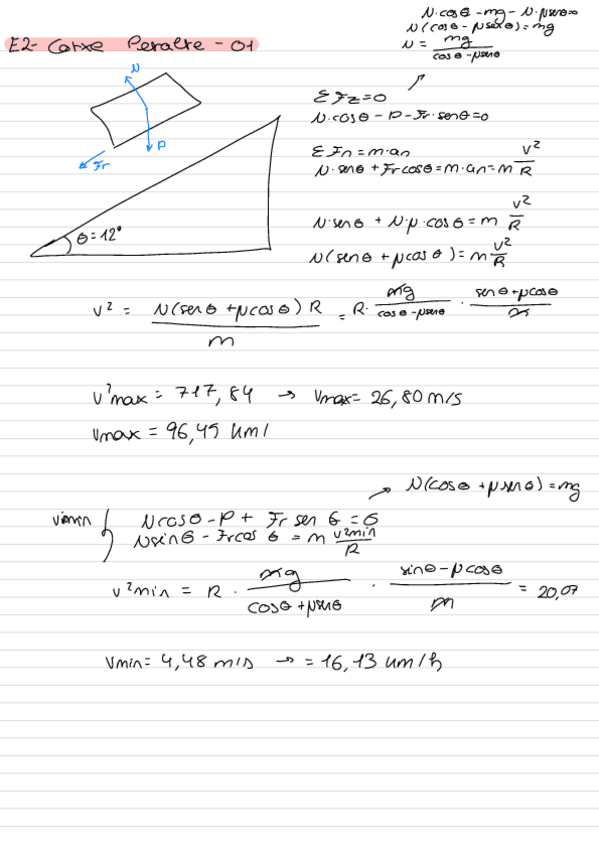 N·cosθ - mg - N·μsenθ=0
N(cosθ - μsenθ)=mg
N = mg / cosθ-μsenθ
E2- Coxxe Peralte - 01
N
P
Fr
θ=12°
ΣFz=0
N·cosθ - P - Fr·senθ=0
ΣFn=m·an
N·senθ + Frcosθ=m·an=m v²/R
N·senθ + N·μ·cosθ = m v²/R
N(senθ + μcosθ)=m v²/R
v² = N(senθ +μcosθ) R / m = R· mg / cosθ-μsenθ · senθ+μcosθ / m
v²max = 717,84 → Vmax= 26,80 m/s
Vmax = 96,45 km/
→ N(cosθ +μsenθ)=mg
vmin { Ncosθ-P+ Fr sen θ =0
Nsinθ - Frcos θ = m v²min/R
v²min = R · mg / cosθ+μsenθ · sinθ-μcosθ / m = 20,07
Vmin= 4,48 m/s → = 16,13 km/h